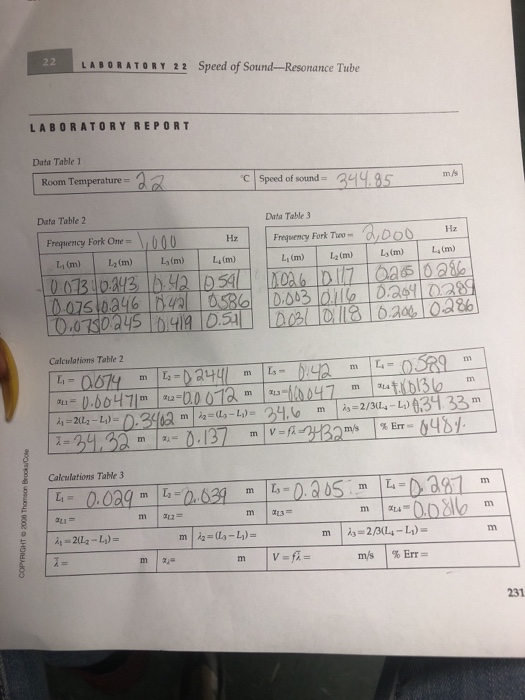 22 LABORATORY 22 Speed of Sound—Resonance Tube
LABORATORY REPORT
Data Table 1
Room Temperature = 22 °C Speed of sound = 344.85 m/s
Data Table 2
Frequency Fork One = 1,000 Hz
L₁ (m) L₂ (m) L₃ (m) L₄ (m)
0.073 0.243 0.42 0.591
0.075 0.246 0.421 0.586
0.075 0.245 0.419
Data Table 3
Frequency Fork Two = 2,000 Hz
L₁ (m) L₂ (m) L₃ (m) L₄ (m)
0.026 0.117 0.205 0.286
0.003 0.116 0.204 0.289
0.031 0.118 0.206 0.286
Calculations Table 2
L̄₁ = 0.074 m L̄₂ = 0.2441 m L̄₃ = 0.42 m L̄₄ = 0.589 m
αL1 = 0.00471 m αL2 = 0.0072 m αL3 = m αL4 = m
λ₁ = 2(L̄₂ − L̄₁) = 0.3402 m λ₂ = (L̄₃ − L̄₁) = 34.6 m λ₃ = 2/3(L̄₄ − L̄₁) = 34.33 m
λ̄ = 34.32 m αλ = 0.137 m V = fλ̄ = 3432 m/s % Err =
Calculations Table 3
L̄₁ = 0.029 m L̄₂ = 0.039 m L̄₃ = 0.205 m L̄₄ = 0.287 m
αL1 = m αL2 = m αL3 = m αL4 = 0.0816 m
λ₁ = 2(L̄₂ − L̄₁) = m λ₂ = (L̄₃ − L̄₁) = m λ₃ = 2/3(L̄₄ − L̄₁) = m
λ̄ = m αλ = m V = fλ̄ = m/s % Err =
COPYRIGHT © 2008 Thomson Brooks/Cole
231